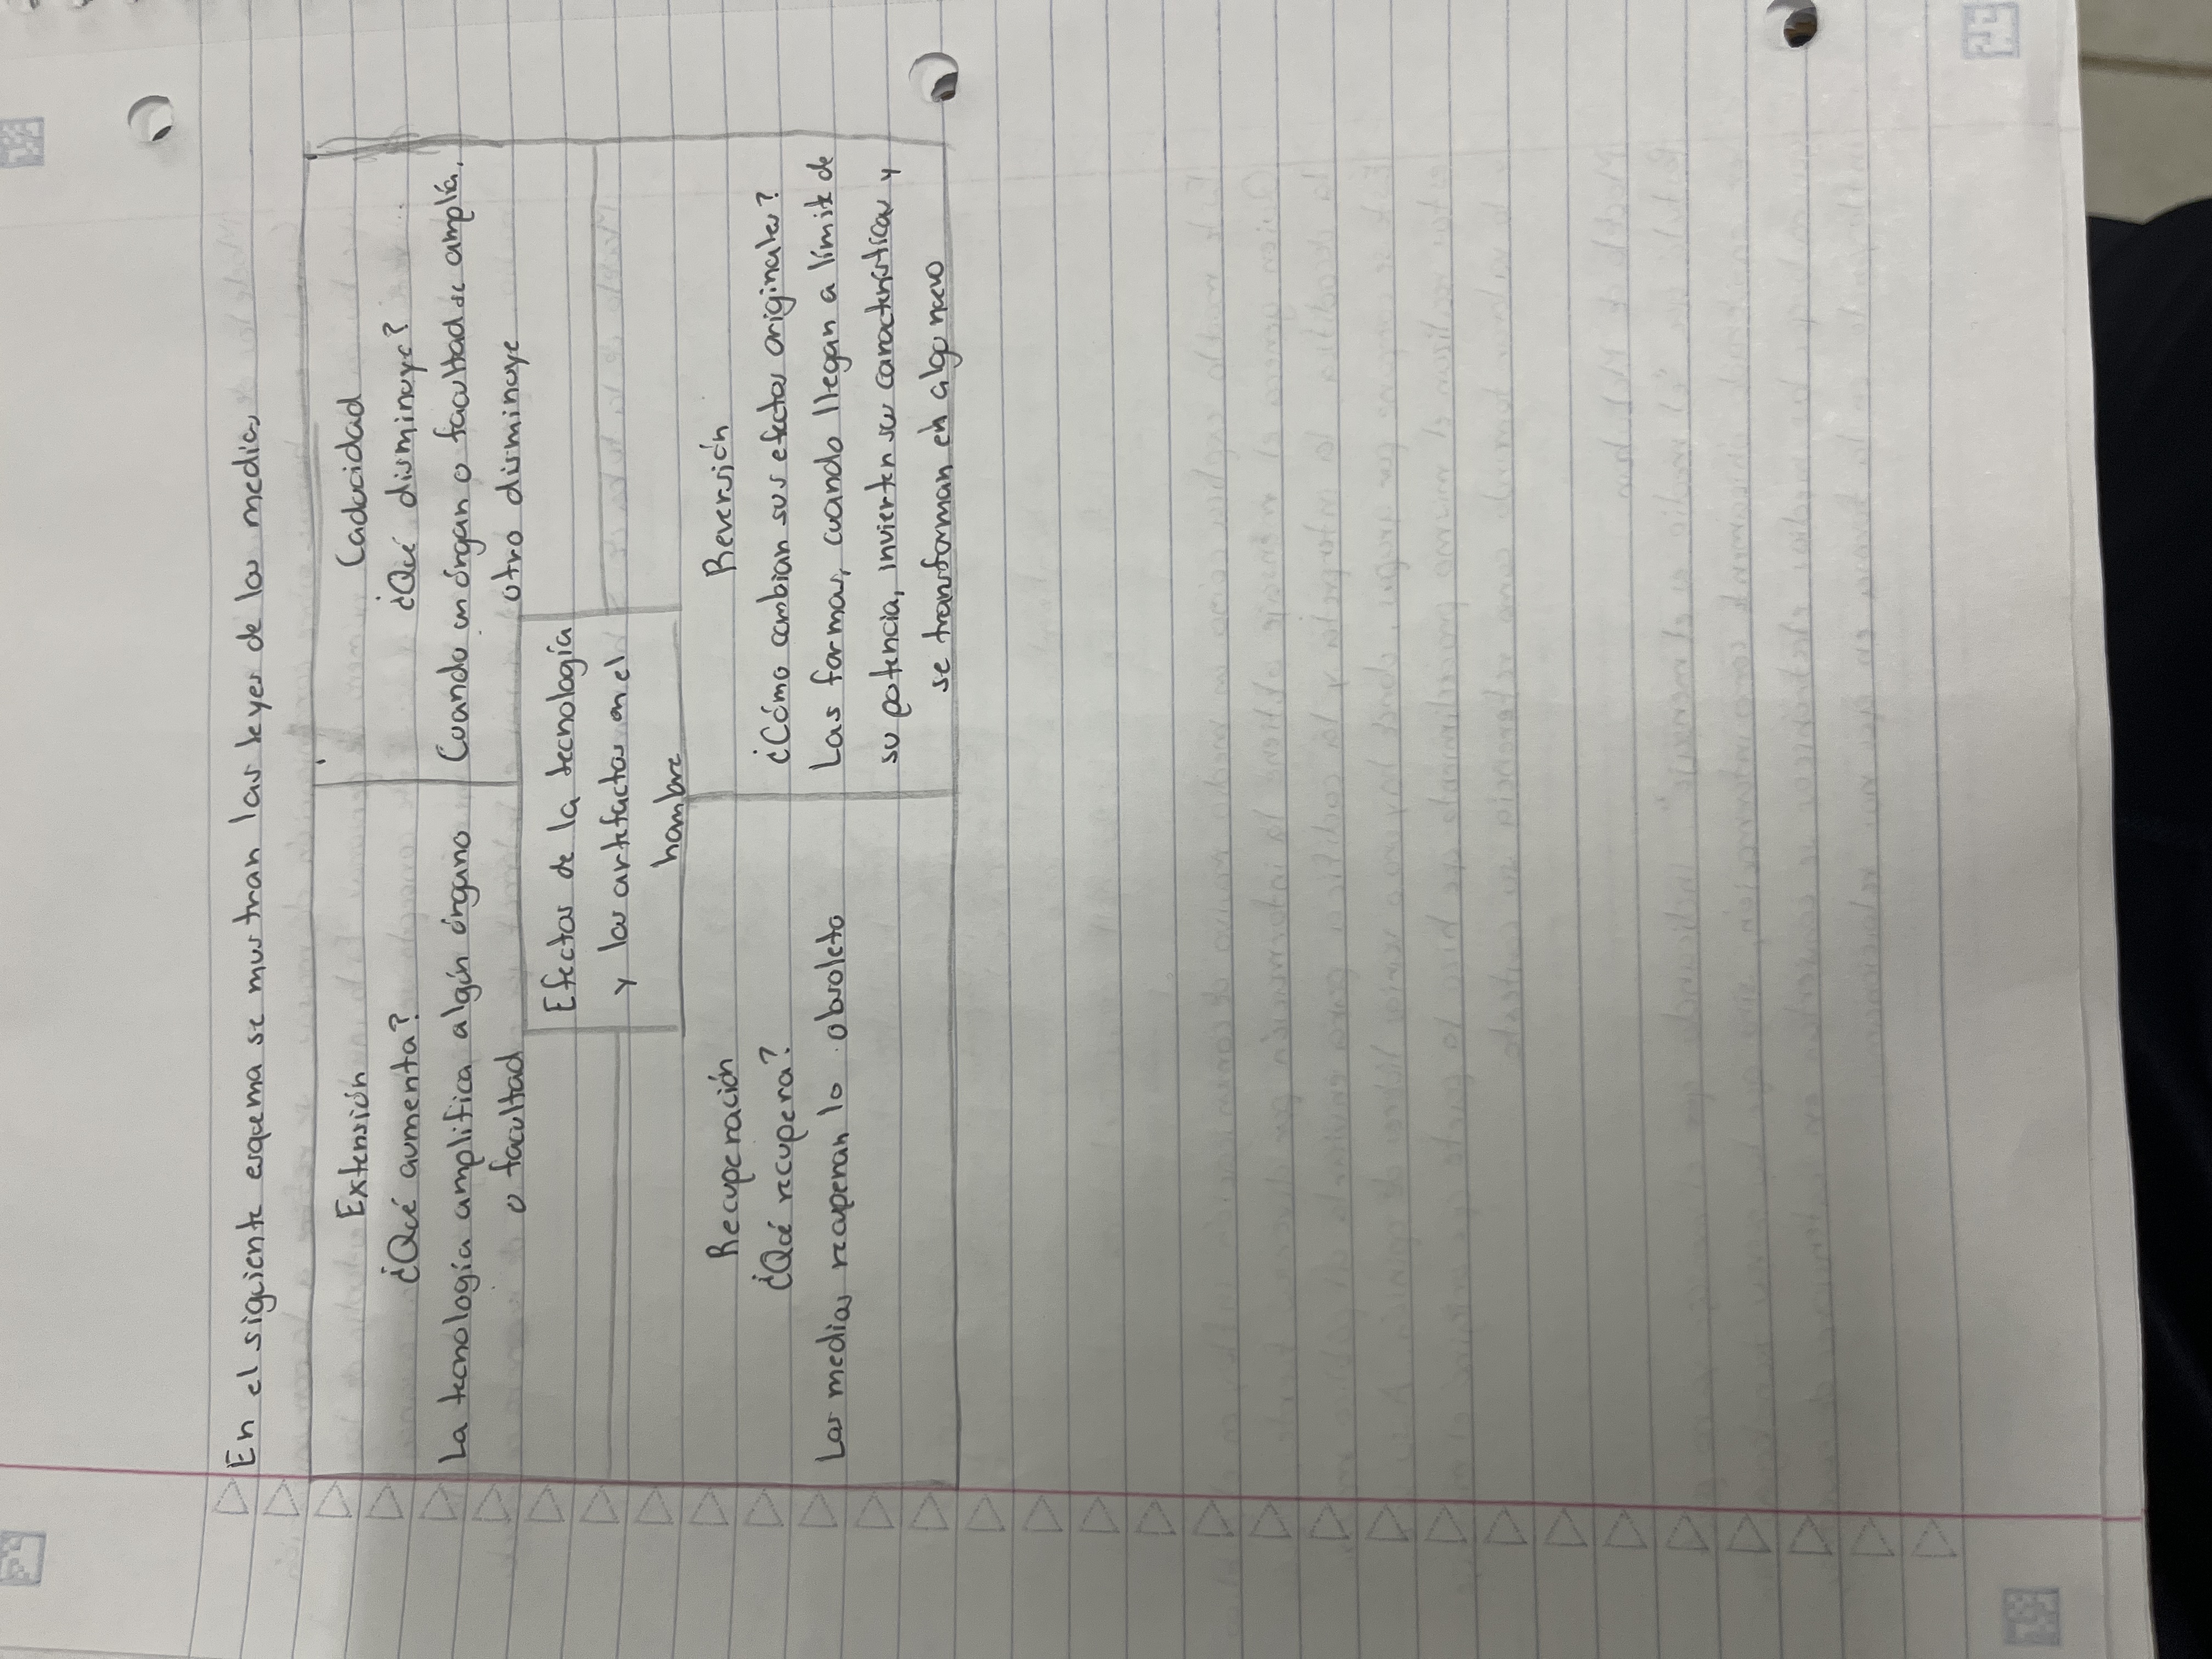 En el siguiente esquema se muestran las leyes de los medios
Extensión
¿Qué aumenta?
La tecnología amplifica algún órgano
o facultad
Caducidad
¿Qué disminuye?
Cuando un órgano o facultad se amplía,
otro disminuye
Efectos de la tecnología
y los artefactos en el
hombre
Recuperación
¿Qué recupera?
Los medios recuperan lo obsoleto
Reversión
¿Cómo cambian sus efectos originales?
Las formas, cuando llegan a límite de
su potencia, invierten sus características y
se transforman en algo nuevo